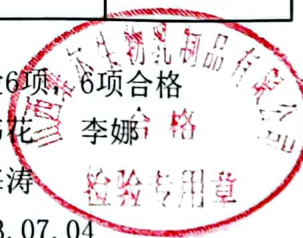 6项，6项合格
花 李娜
涛
.07.04
生物乳制品有限公司
合格
检验专用章